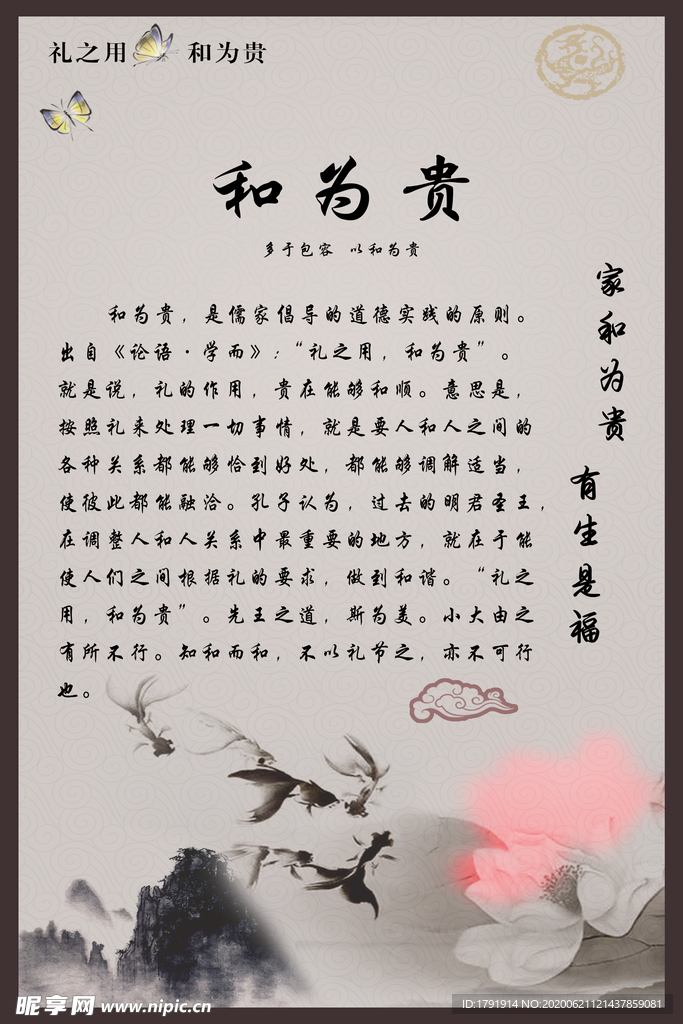 礼之用 和为贵
和为贵
多于包容 以和为贵
家和为贵
有生是福
和为贵，是儒家倡导的道德实践的原则。
出自《论语·学而》：“礼之用，和为贵”。
就是说，礼的作用，贵在能够和顺。意思是，
按照礼来处理一切事情，就是要人和人之间的
各种关系都能够恰到好处，都能够调解适当，
使彼此都能融洽。孔子认为，过去的明君圣王，
在调整人和人关系中最重要的地方，就在于能
使人们之间根据礼的要求，做到和谐。“礼之
用，和为贵”。先王之道，斯为美。小大由之
有所不行。知和而和，不以礼节之，亦不可行
也。
昵享网 www.nipic.cn
ID:1791914 NO:20200621121437859081